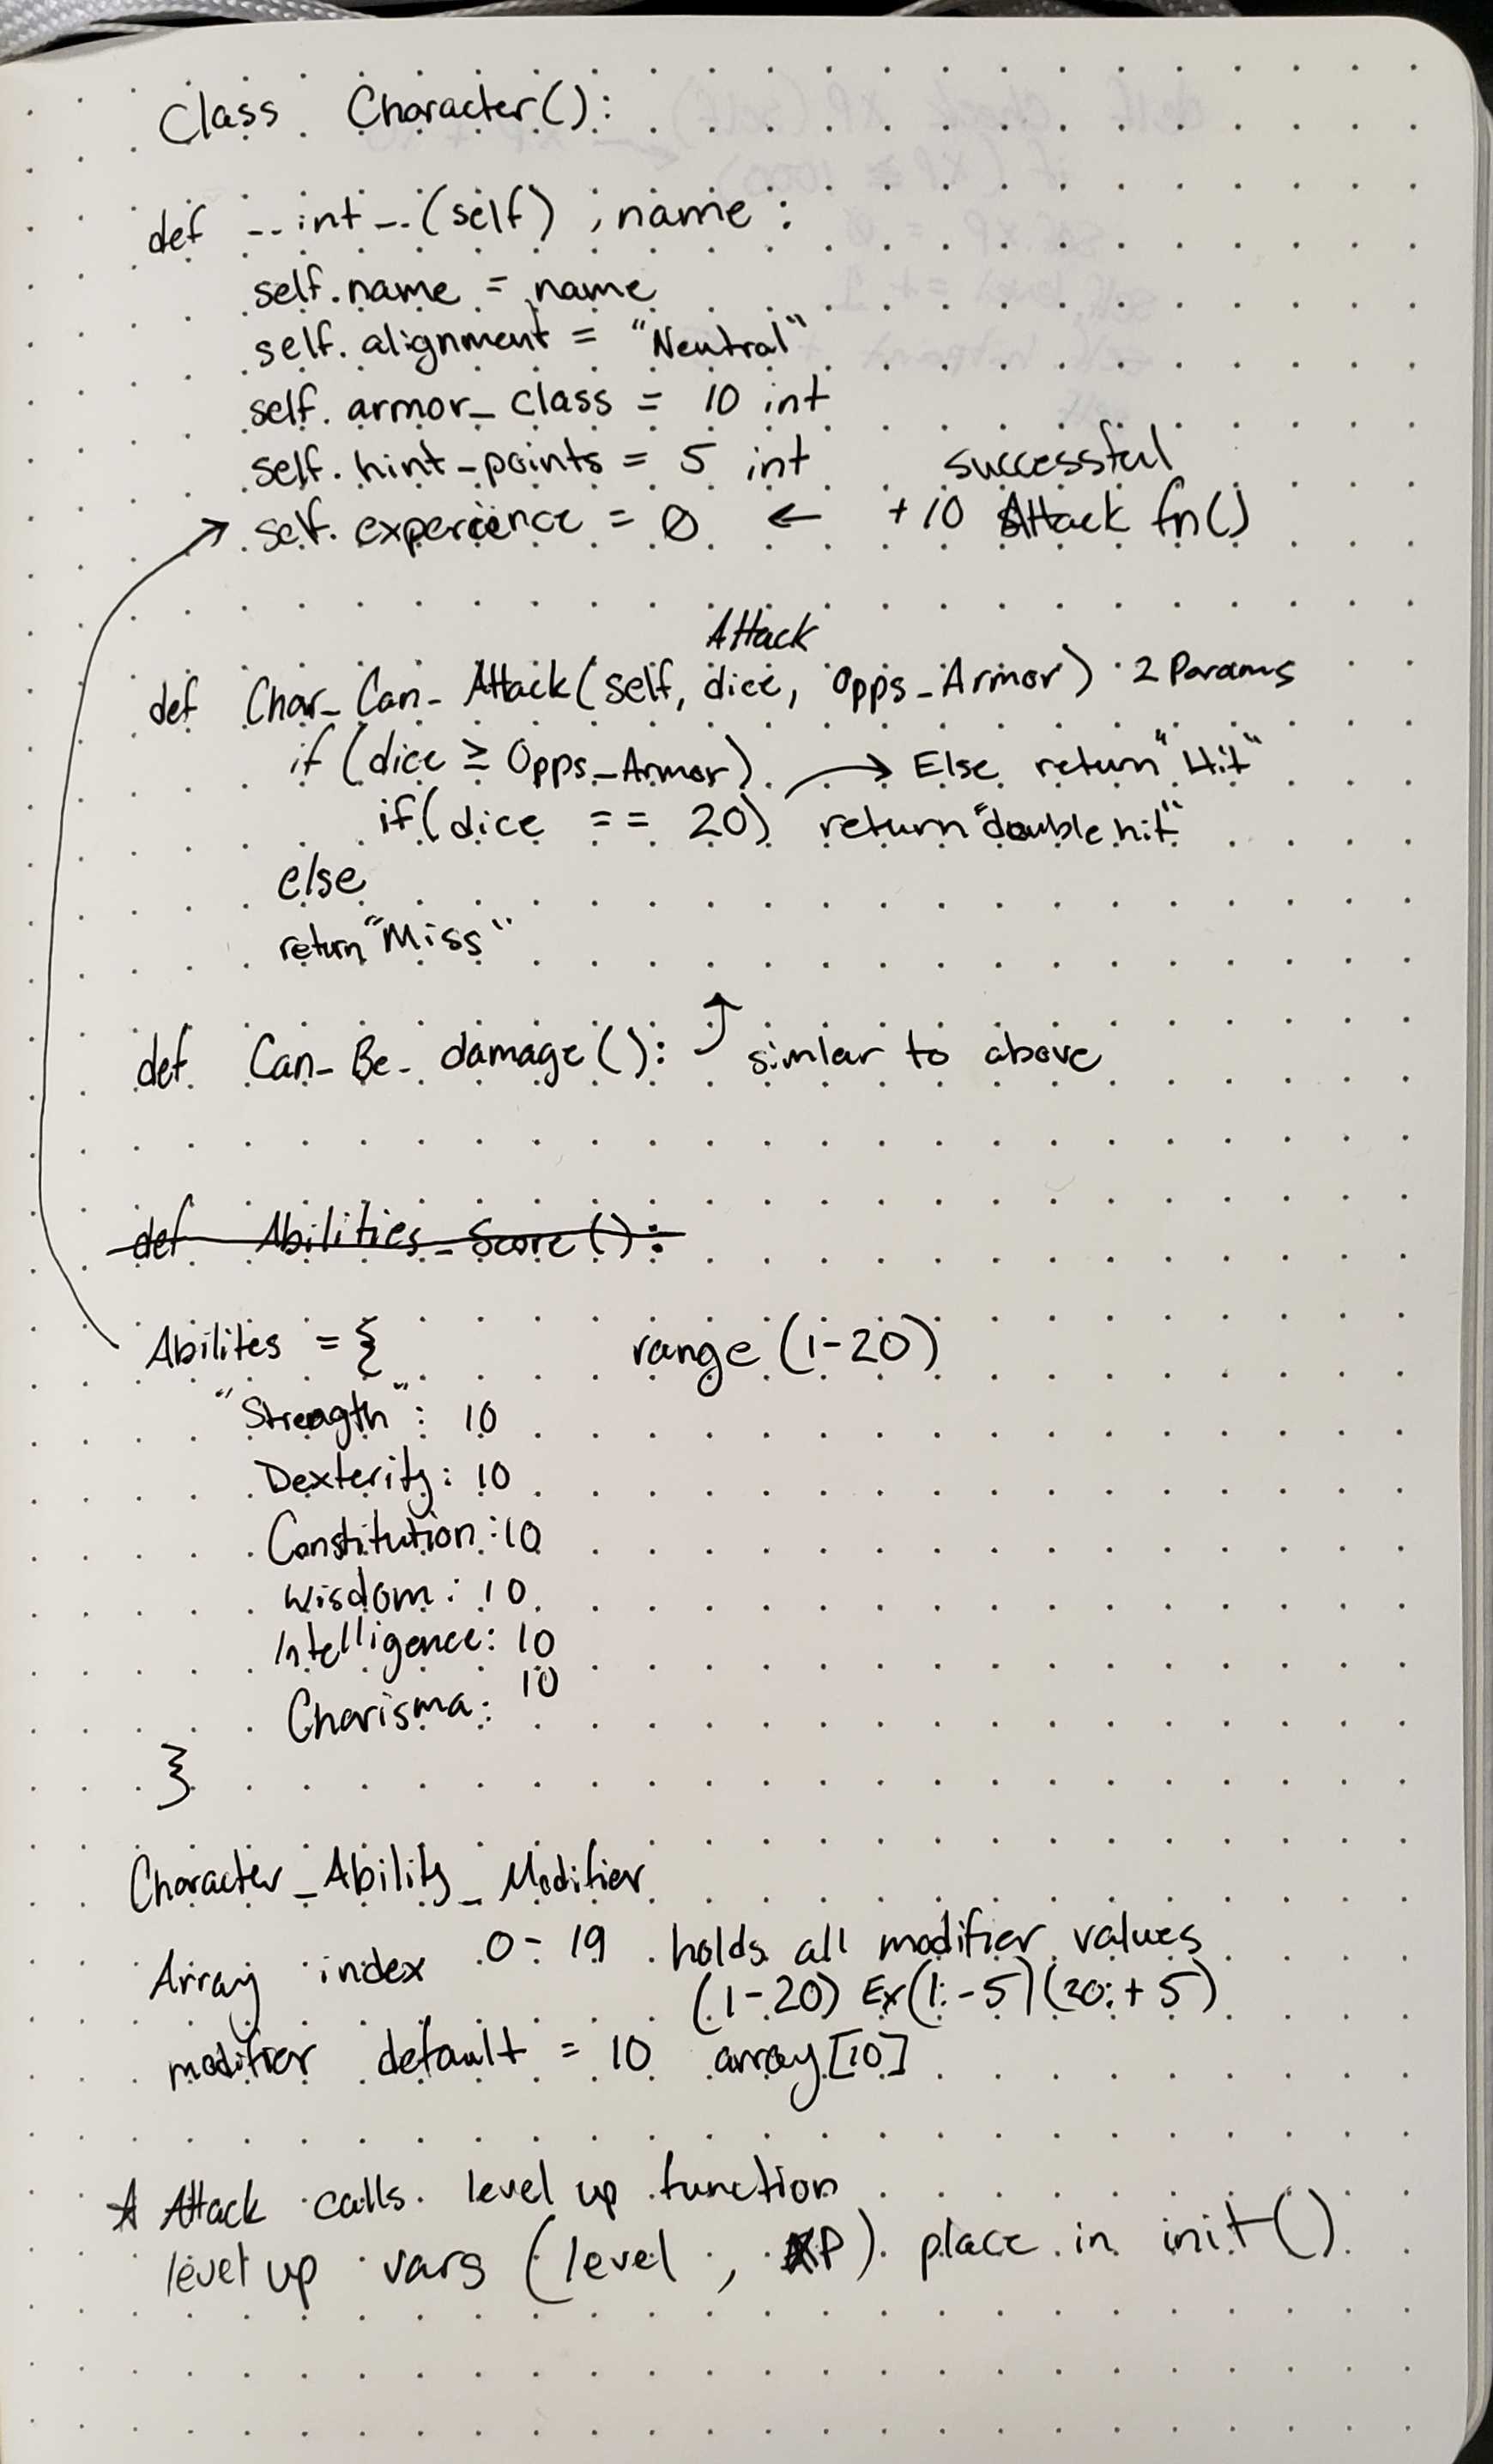 Class Character():
def __int__(self), name:
self.name = name
self.alignment = "Neutral"
self.armor_class = 10 int
self.hint_points = 5 int successful
self.experience = 0 ← +10 Attack fn()
Attack
def Char_Can_Attack(self, dice, Opps_Armor) 2 Params
if (dice ≥ Opps_Armor) → Else return "Hit"
if (dice == 20) return "double hit"
else
return "Miss"
def Can_Be_damage(): similar to above
def Abilities_Score():
Abilites = { range (1-20)
"Strength": 10
Dexterity: 10
Constitution: 10
Wisdom: 10
Intelligence: 10
Charisma: 10
}
Character_Ability_Modifier
Array index 0-19 holds all modifier values
(1-20) Ex(1:-5)(20:+5)
modifier default = 10 array[10]
Attack calls level up function
level up vars (level, XP) place in init()